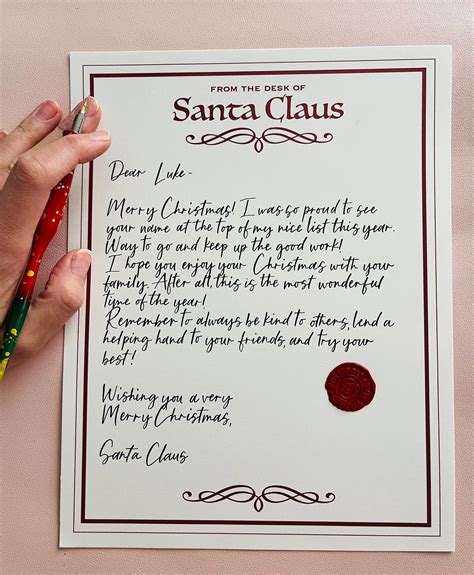 FROM THE DESK OF
Santa Claus
Dear Luke-
Merry Christmas! I was so proud to see
your name at the top of my nice list this year.
Way to go and keep up the good work!
I hope you enjoy your Christmas with your
family. After all, this is the most wonderful
time of the year!
Remember to always be kind to others, lend a
helping hand to your friends, and try your
best!
Wishing you a very
Merry Christmas,
Santa Claus